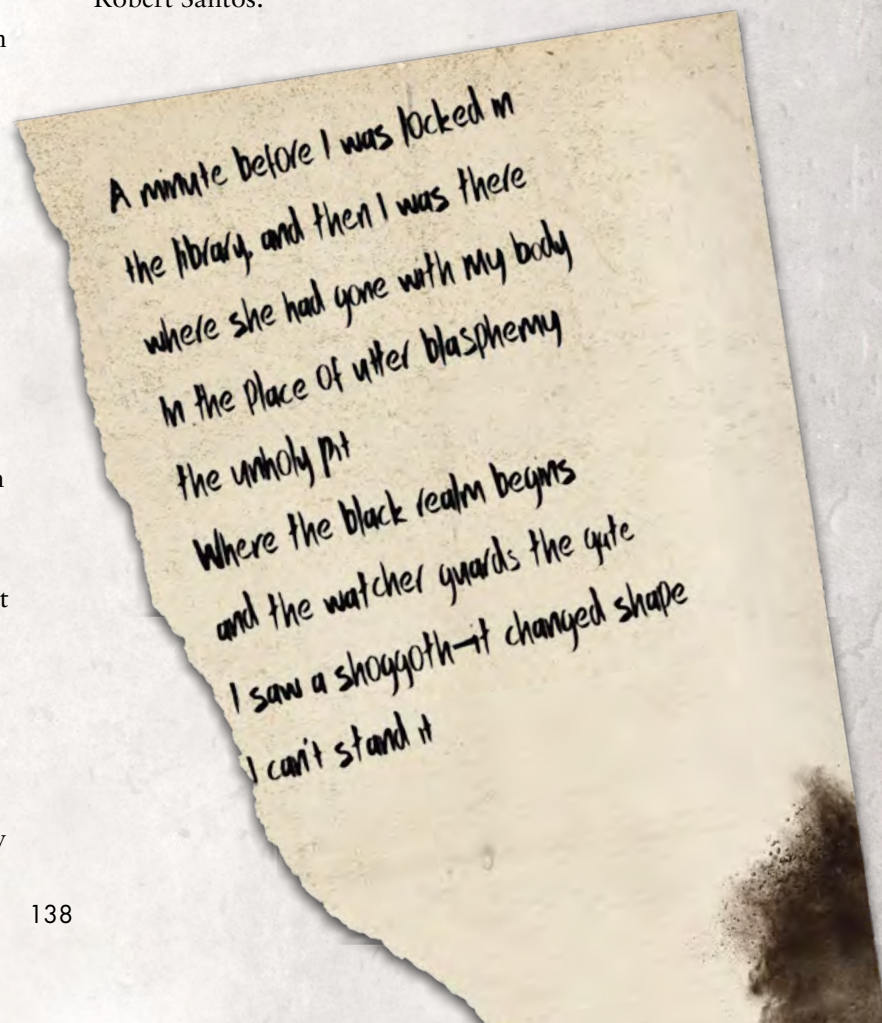 Robert Santos.
A minute before I was locked in
the library, and then I was there
where she had gone with my body
In the place of utter blasphemy
the unholy pit
Where the black realm begins
and the watcher guards the gate
I saw a shoggoth—it changed shape
I can't stand it
138